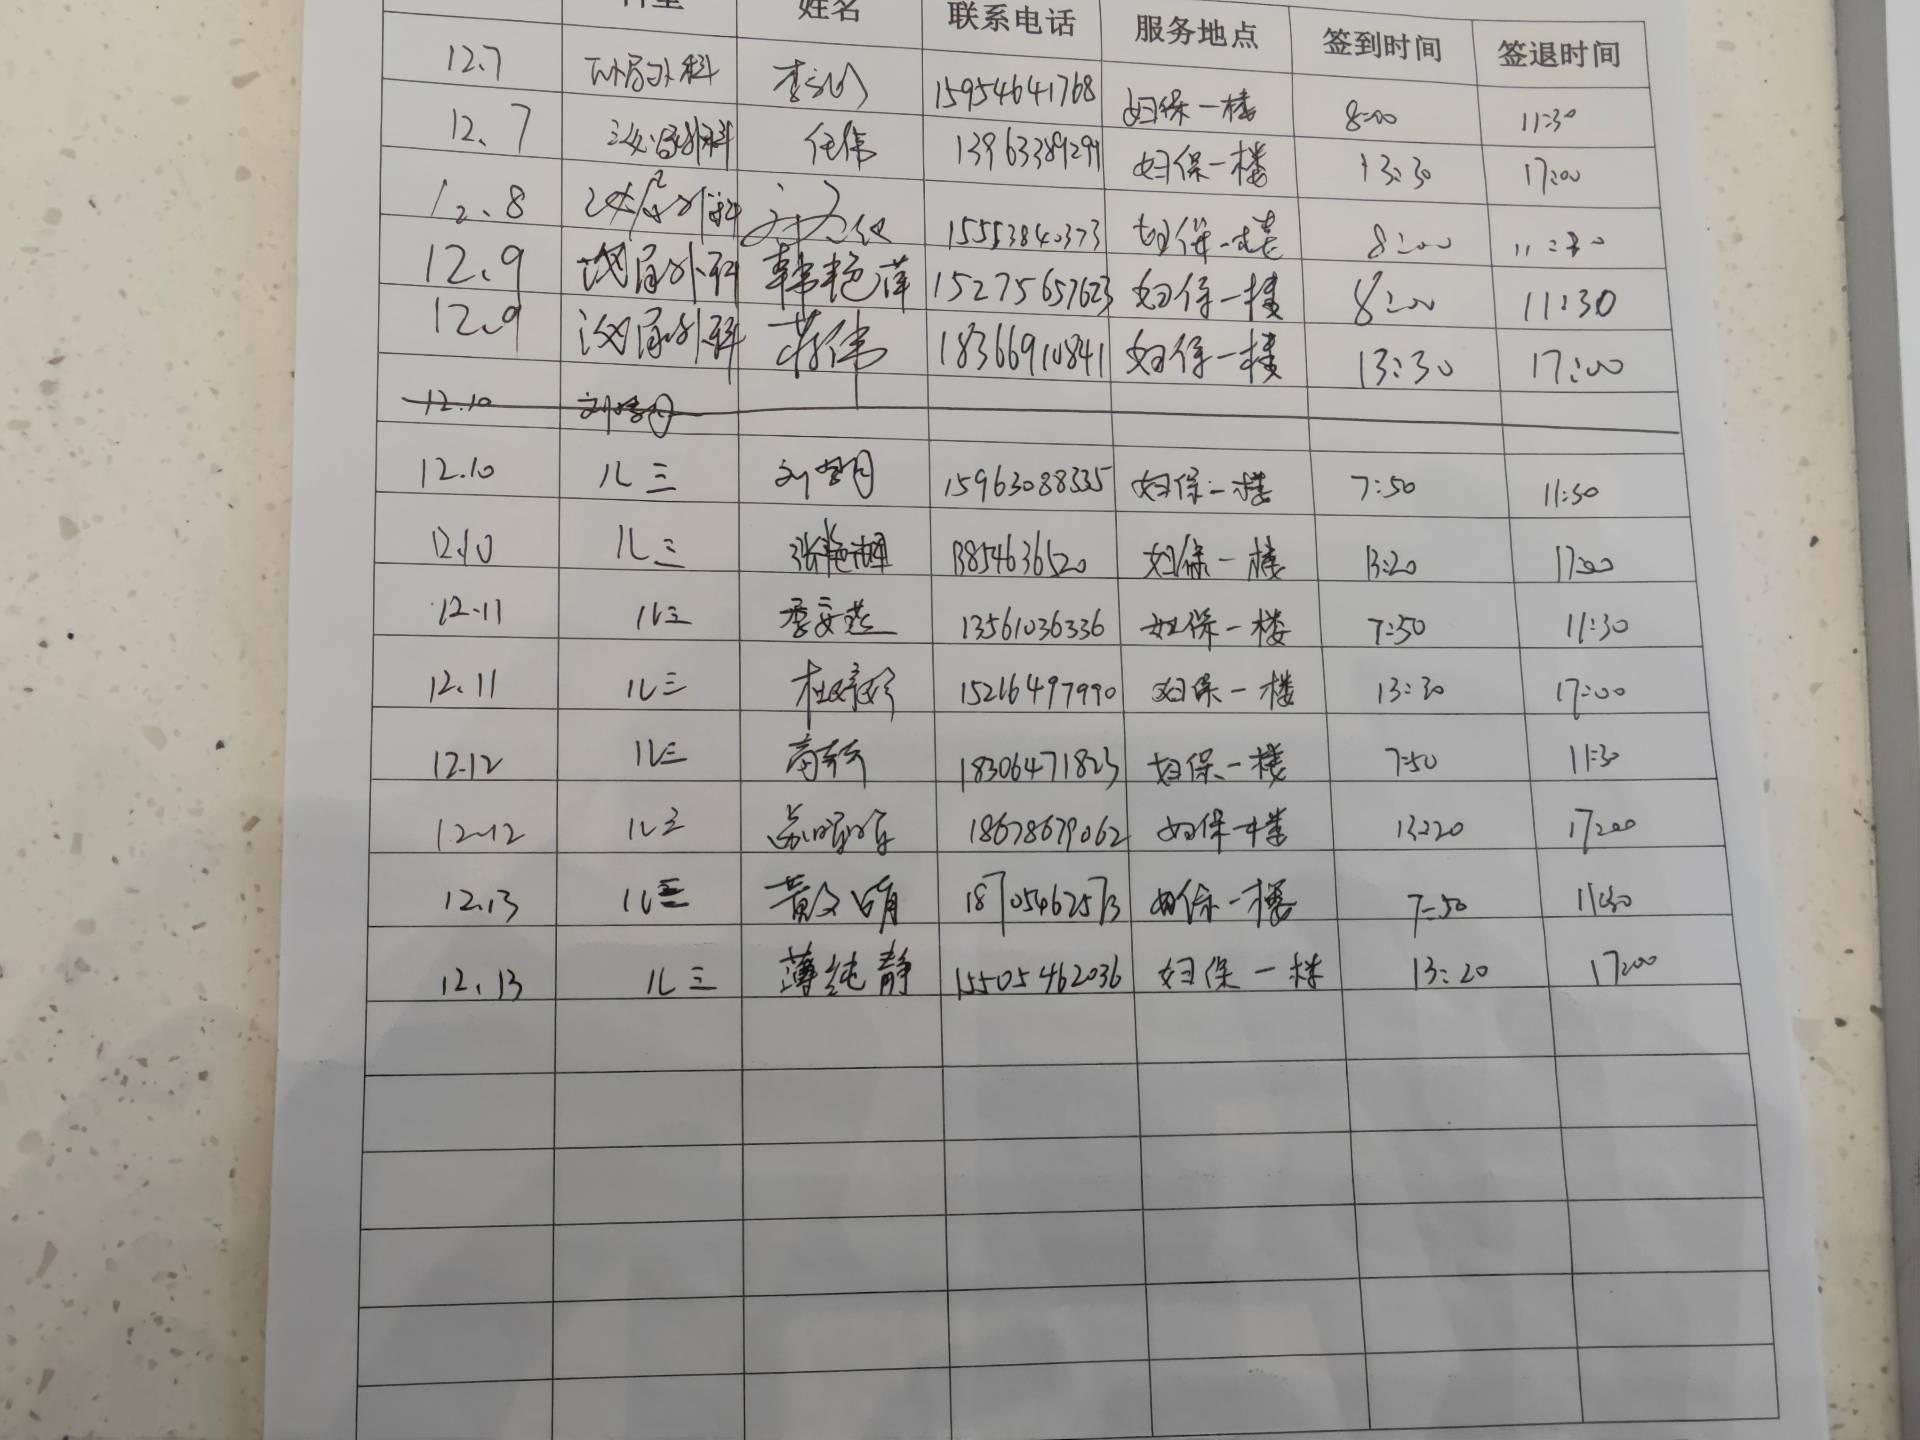 姓名 联系电话 服务地点 签到时间 签退时间
12.7 泌尿外科 李 15954641768 妇保一楼 8:00 11:30
12.7 泌尿外科 任伟 13963389299 妇保一楼 13:30 17:00
12.8 泌尿外科 15553840373 妇保一楼 8:00 11:30
12.9 泌尿外科 韩艳萍 15275657623 妇保一楼 8:00 11:30
12.9 泌尿外科 蒋伟 18366910841 妇保一楼 13:30 17:00
12.10
12.10 儿三 刘 15963088335 妇保一楼 7:50 11:30
12.10 儿三 张艳 13854636520 妇保一楼 13:20 17:00
12.11 儿三 季文燕 13561036336 妇保一楼 7:50 11:30
12.11 儿三 杜婷婷 15216497990 妇保一楼 13:30 17:00
12.12 儿三 18306471823 妇保一楼 7:50 11:30
12.12 儿三 18678679062 妇保一楼 13:20 17:00
12.13 儿三 黄文娟 18705462573 妇保一楼 7:50 11:30
12.13 儿三 薄纯静 15505462036 妇保一楼 13:20 17:00